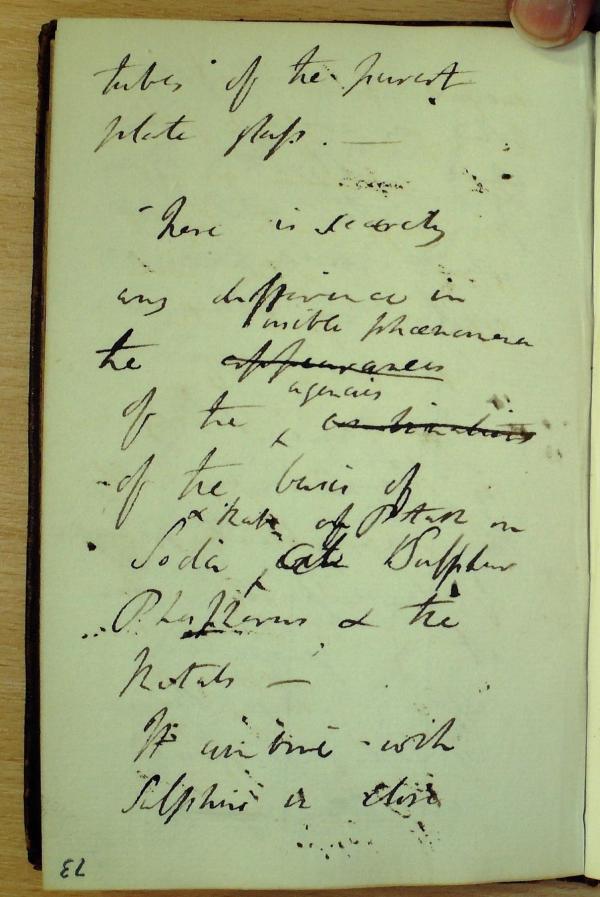 tubes of the purest
plate glass. —
There is scarcely
any difference in
visible phænomena
the appearances
agencies
of the combinations
of the basis of
& that of Potash on
Soda Sulphur
Phosphorus & the
Metals —
It combines with
Sulphur in close
73